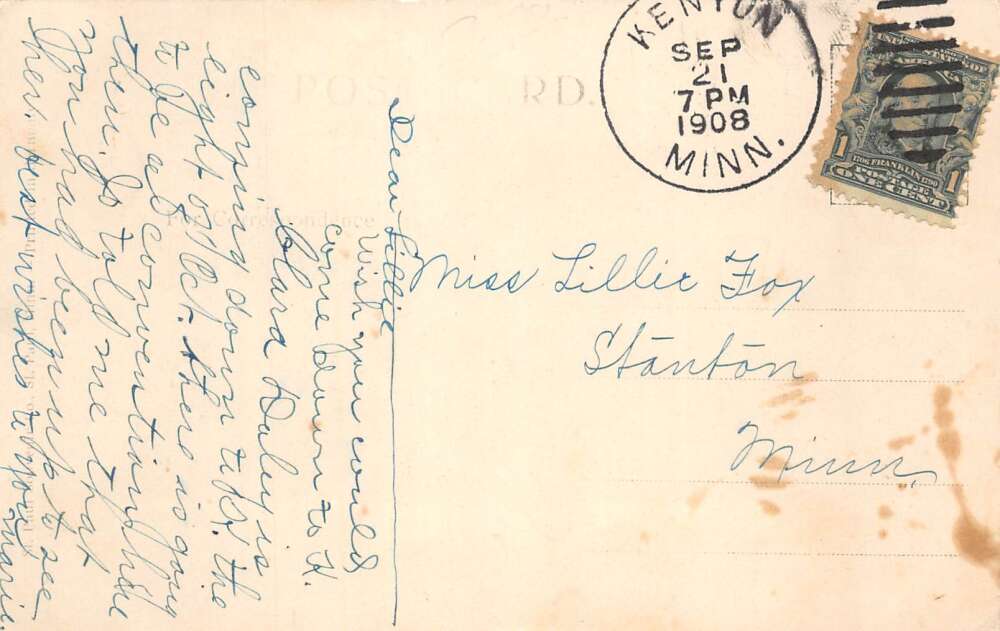 POST CARD.
For Correspondence
KENYON
SEP
21
7 PM
1908
MINN.
1 1706 FRANKLIN 1790 1
POSTAGE
ONE CENT
Dear Lillie
Wish you could
come down to K.
Clara Daley is
coming down to K. the
eight of Oct. there is going
to be a convention here
then. Jo told me that
You had been up to see
her. best wishes to you
Marie.
Miss Lillie Fox
Stanton
Minn.